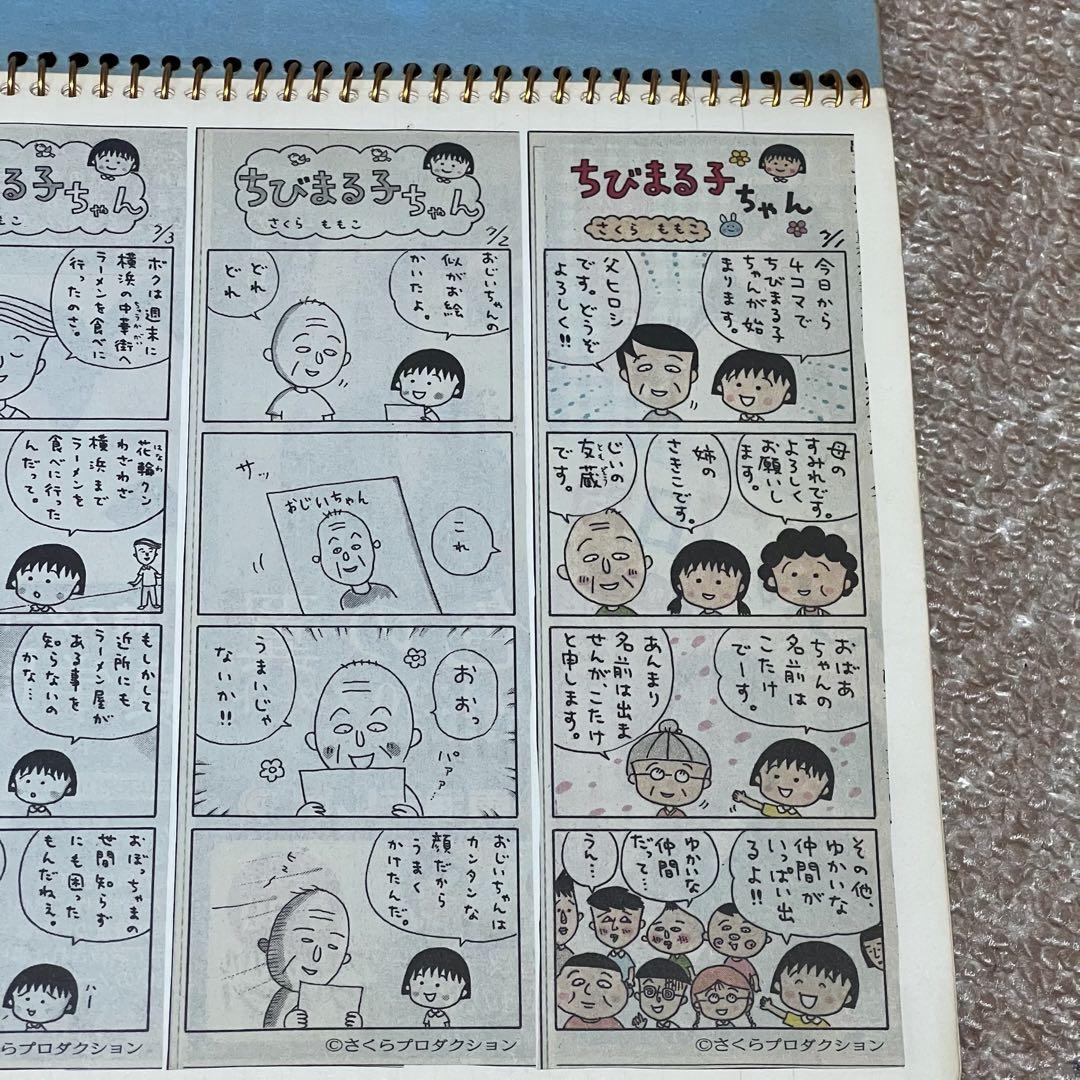 ちびまる子
ちゃん
さくら ももこ
7/1
今日から
4コマで
ちびまる子
ちゃんが始
まります。
父ヒロシ
です。どうぞ
よろしく!!
母の
すみれです。
よろしく
お願いし
ます。
姉の
さきこです。
じいの
友蔵
ともぞう
です。
おばあ
ちゃんの
名前は
こたけ
でーす。
あんまり
名前は出ま
せんが、こたけ
と申します。
その他、
ゆかいな
仲間が
いっぱい出
るよ!!
ゆかいな
仲間
だって…
うん…
©さくらプロダクション
ちびまる子
ちゃん
さくら ももこ
7/2
おじいちゃんの
似がお絵
かいたよ。
どれ
どれ
サッ
おじいちゃん
これ
おおっ
うまいじゃ
ないか!!
パァァ…
おじいちゃんは
カンタンな
顔だから
うまく
かけたんだ。
©さくらプロダクション
る子
ちゃん
もこ
7/3
ボクは週末に
横浜の中華街へ
ちゅうかがい
ラーメンを食べに
行ったのさ。
花輪クン
はなわ
わざわざ
横浜まで
ラーメンを
食べに行った
んだって。
もしかして
近所にも
ラーメン屋が
ある事を
知らないの
かな…
おぼっちゃまの
世間知らず
にも困った
もんだねえ。
ハー
らプロダクション